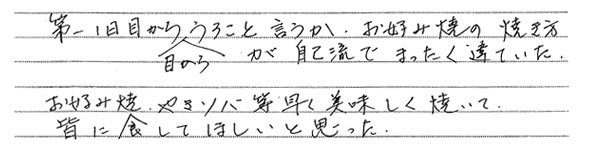 第一日目からうろこと言うか、お好み焼の焼き方
目から
が自己流でまったく違ていた。
お好み焼、やきソバ等早く美味しく焼いて、
皆に食してほしいと思った。